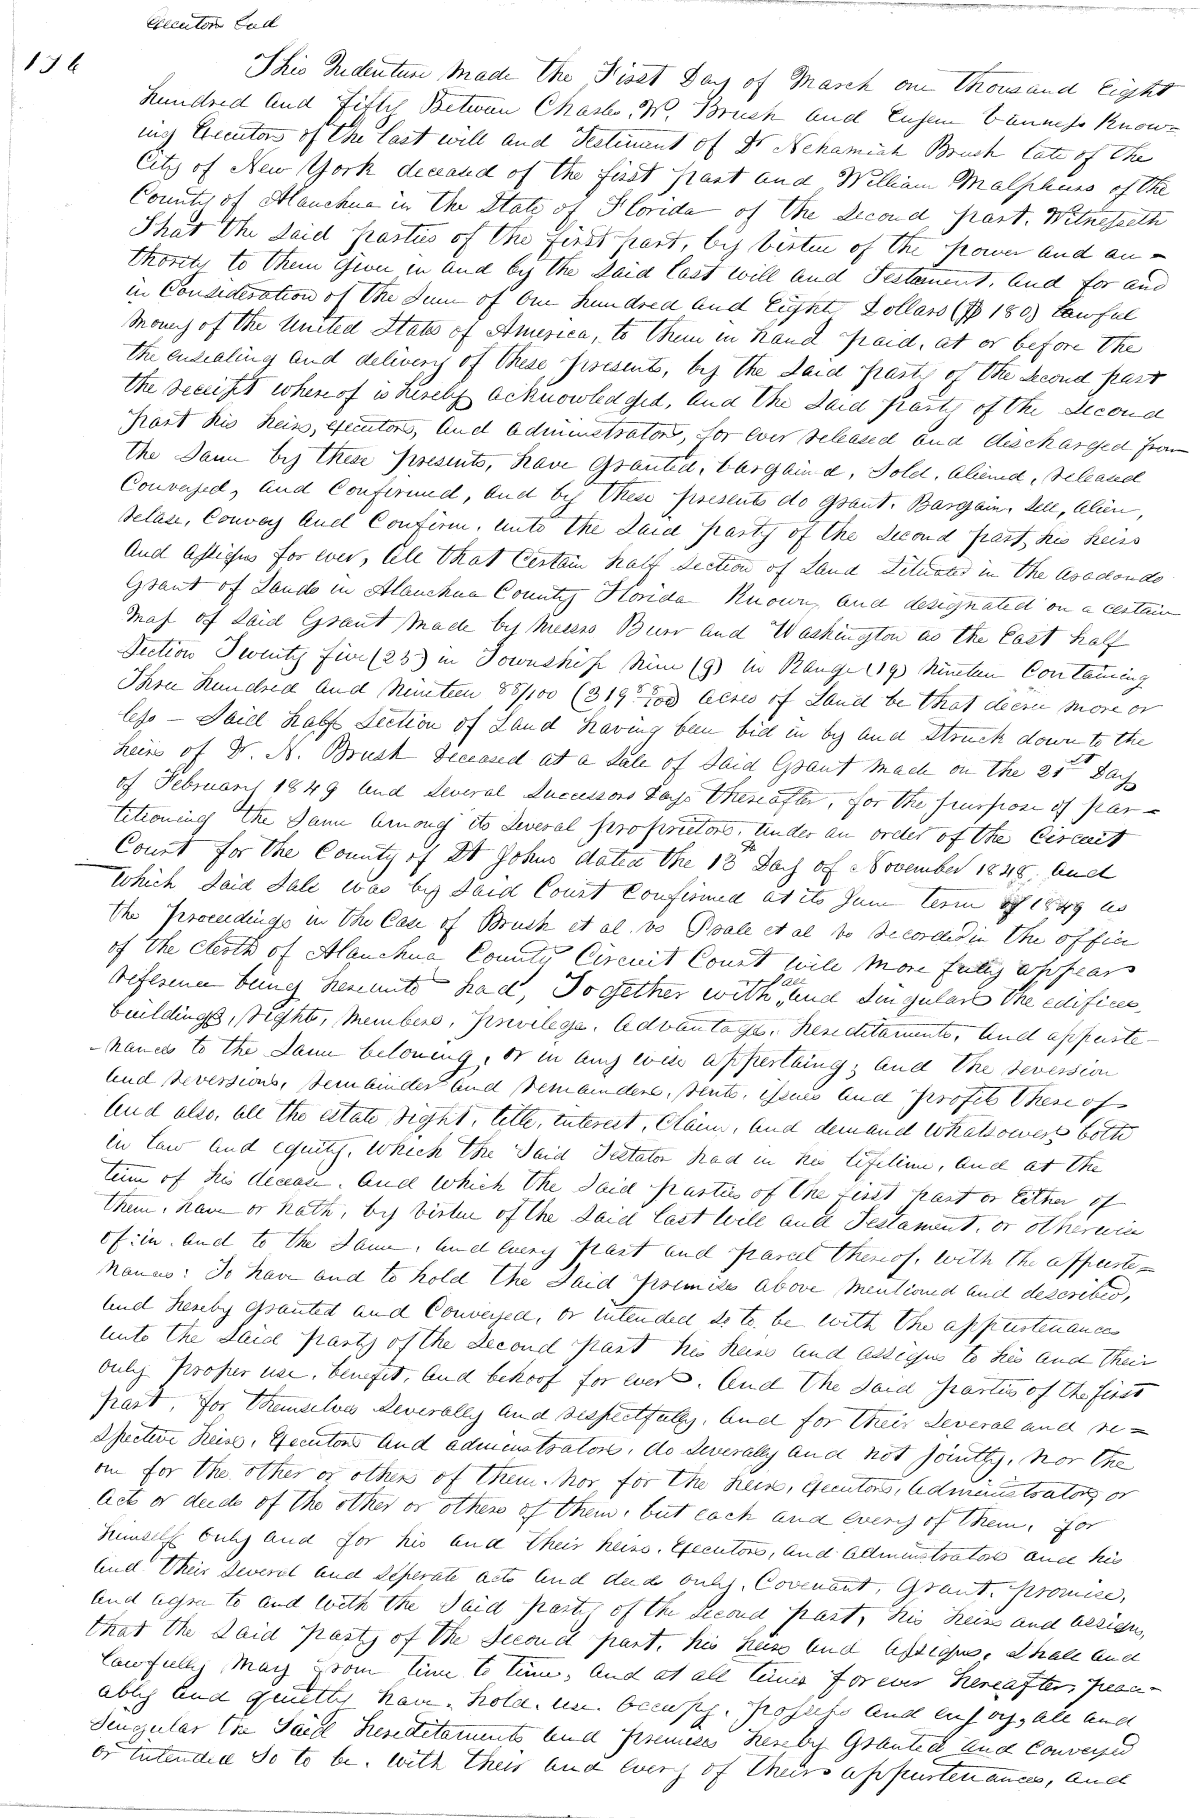 Executors Eed
136
This Indenture Made the First Day of March one thousand Eight
hundred and fifty Between Charles. W. Brush and Eugene Vanness Know-
ing Executors of the Last will and Testiment of Dr Nehamiah Brush late of the
City of New York deceased of the first part and William Malphurs of the
County of Alauchua in the State of Florida of the Second part. Witnesseth
That the Said parties of the first part, by virtue of the power and au-
thority to them given in and by the Said Last will and Testament. and for and
in Consideration of the Sum of One hundred and Eighty Dollars ($180) Lawful
Money of the United States of America, to them in hand paid, at or before the
the ensealing and delivery of these presents, by the Said party of the Second part
the receipt whereof is hereby acknowledged, and the Said party of the Second
part his heirs, executors, and administrators, for ever released and discharged from
the Same by these presents, have Granted, bargained, Sold, aliened, released
Conveyed, and Confirmed, and by these presents do grant. Bargain, Sell, alien,
relase, Convey and Confirm. unto the Said party of the Second part, his heirs
and assigns for ever, all that Certain half Section of Land Situated in the aradondo
Grant of Lands in Alauchua County Florida Known, and designated on a certain
Map of Said Grant Made by Messrs Burr and Washington as the East half
Section Twenty five (25) in Township Nine (9) in Range (19) Nineteen Containing
Three hundred and Nineteen 88/100 (319 88/100) acres of Land be that more or
less - Said half Section of Land having been bid in by and Struck down to the
heirs of Dr. N. Brush deceased at a Sale of Said Grant Made on the 21st Day
of February 1849 and Several Successors Days thereafter, for the purpose of par-
titioning the Same among its Several proprietors, Under an order of the Circuit
Court for the County of St Johns dated the 13th Day of November 1848. and
which Said Sale was by Said Court Confirmed at its June term of 1849 as
the proceedings in the Case of Brush et al. vs et al recorded in the office
of the Clerk of Alauchua County Circuit Court will More fully appears
reference being hereunto had, Together with all and Singular the edifices,
buildings, rights, Members, privileges. Advantages. hereditaments, and appurte-
-nances to the Same beloning, or in any wise appertaing; and the reversion
and reversions, remainder and remainders, rents, issues and profits thereof
and also, all the estate right, title, interest, Claim, and demand whatsowers both
in Law and equity, which the Said Testator had in his lifetime, and at the
time of his decease. and which the Said parties of the first part or Either of
them, have or hath, by Virtue of the Said Last Will and Testament. or otherwise
of: in. and to the Same, and every part and parcel thereof, with the appurte=
nances: To have and to hold the Said premises above Mentioned and described,
and hereby granted and Conveyed, or intended So to be with the appurtenances
unto the Said party of the Second part his heirs and assigns to his and their
only proper use, benefit, and behoof for ever. And the Said parties of the first
part, for themselves Severally and respectfully, and for their Several and re=
spective heirs, Executors and administrators, do Severally and not jointly, nor the
one for the other or others of them. Nor for the heirs, Executors, Administrators or
acts or deeds of the other or others of them, but each and every of them, for
himself only and for his and their heirs. Executors, and administrators and his
and their Several and Seperate acts and deeds only. Covenant, Grant. promise,
and agree to and with the Said party of the Second part, his heirs and assigns,
that the Said party of the Second part. his heirs and assigns. Shall and
Lawfully May from time to time, and at all times for ever hereafter, peace-
ably and quietly have. hold. use. Occupy. possess and enjoy, all and
Singular the Said hereditaments and premises hereby Granted and Conveyed
or intended So to be. with their and every of theirs appurtenances, and